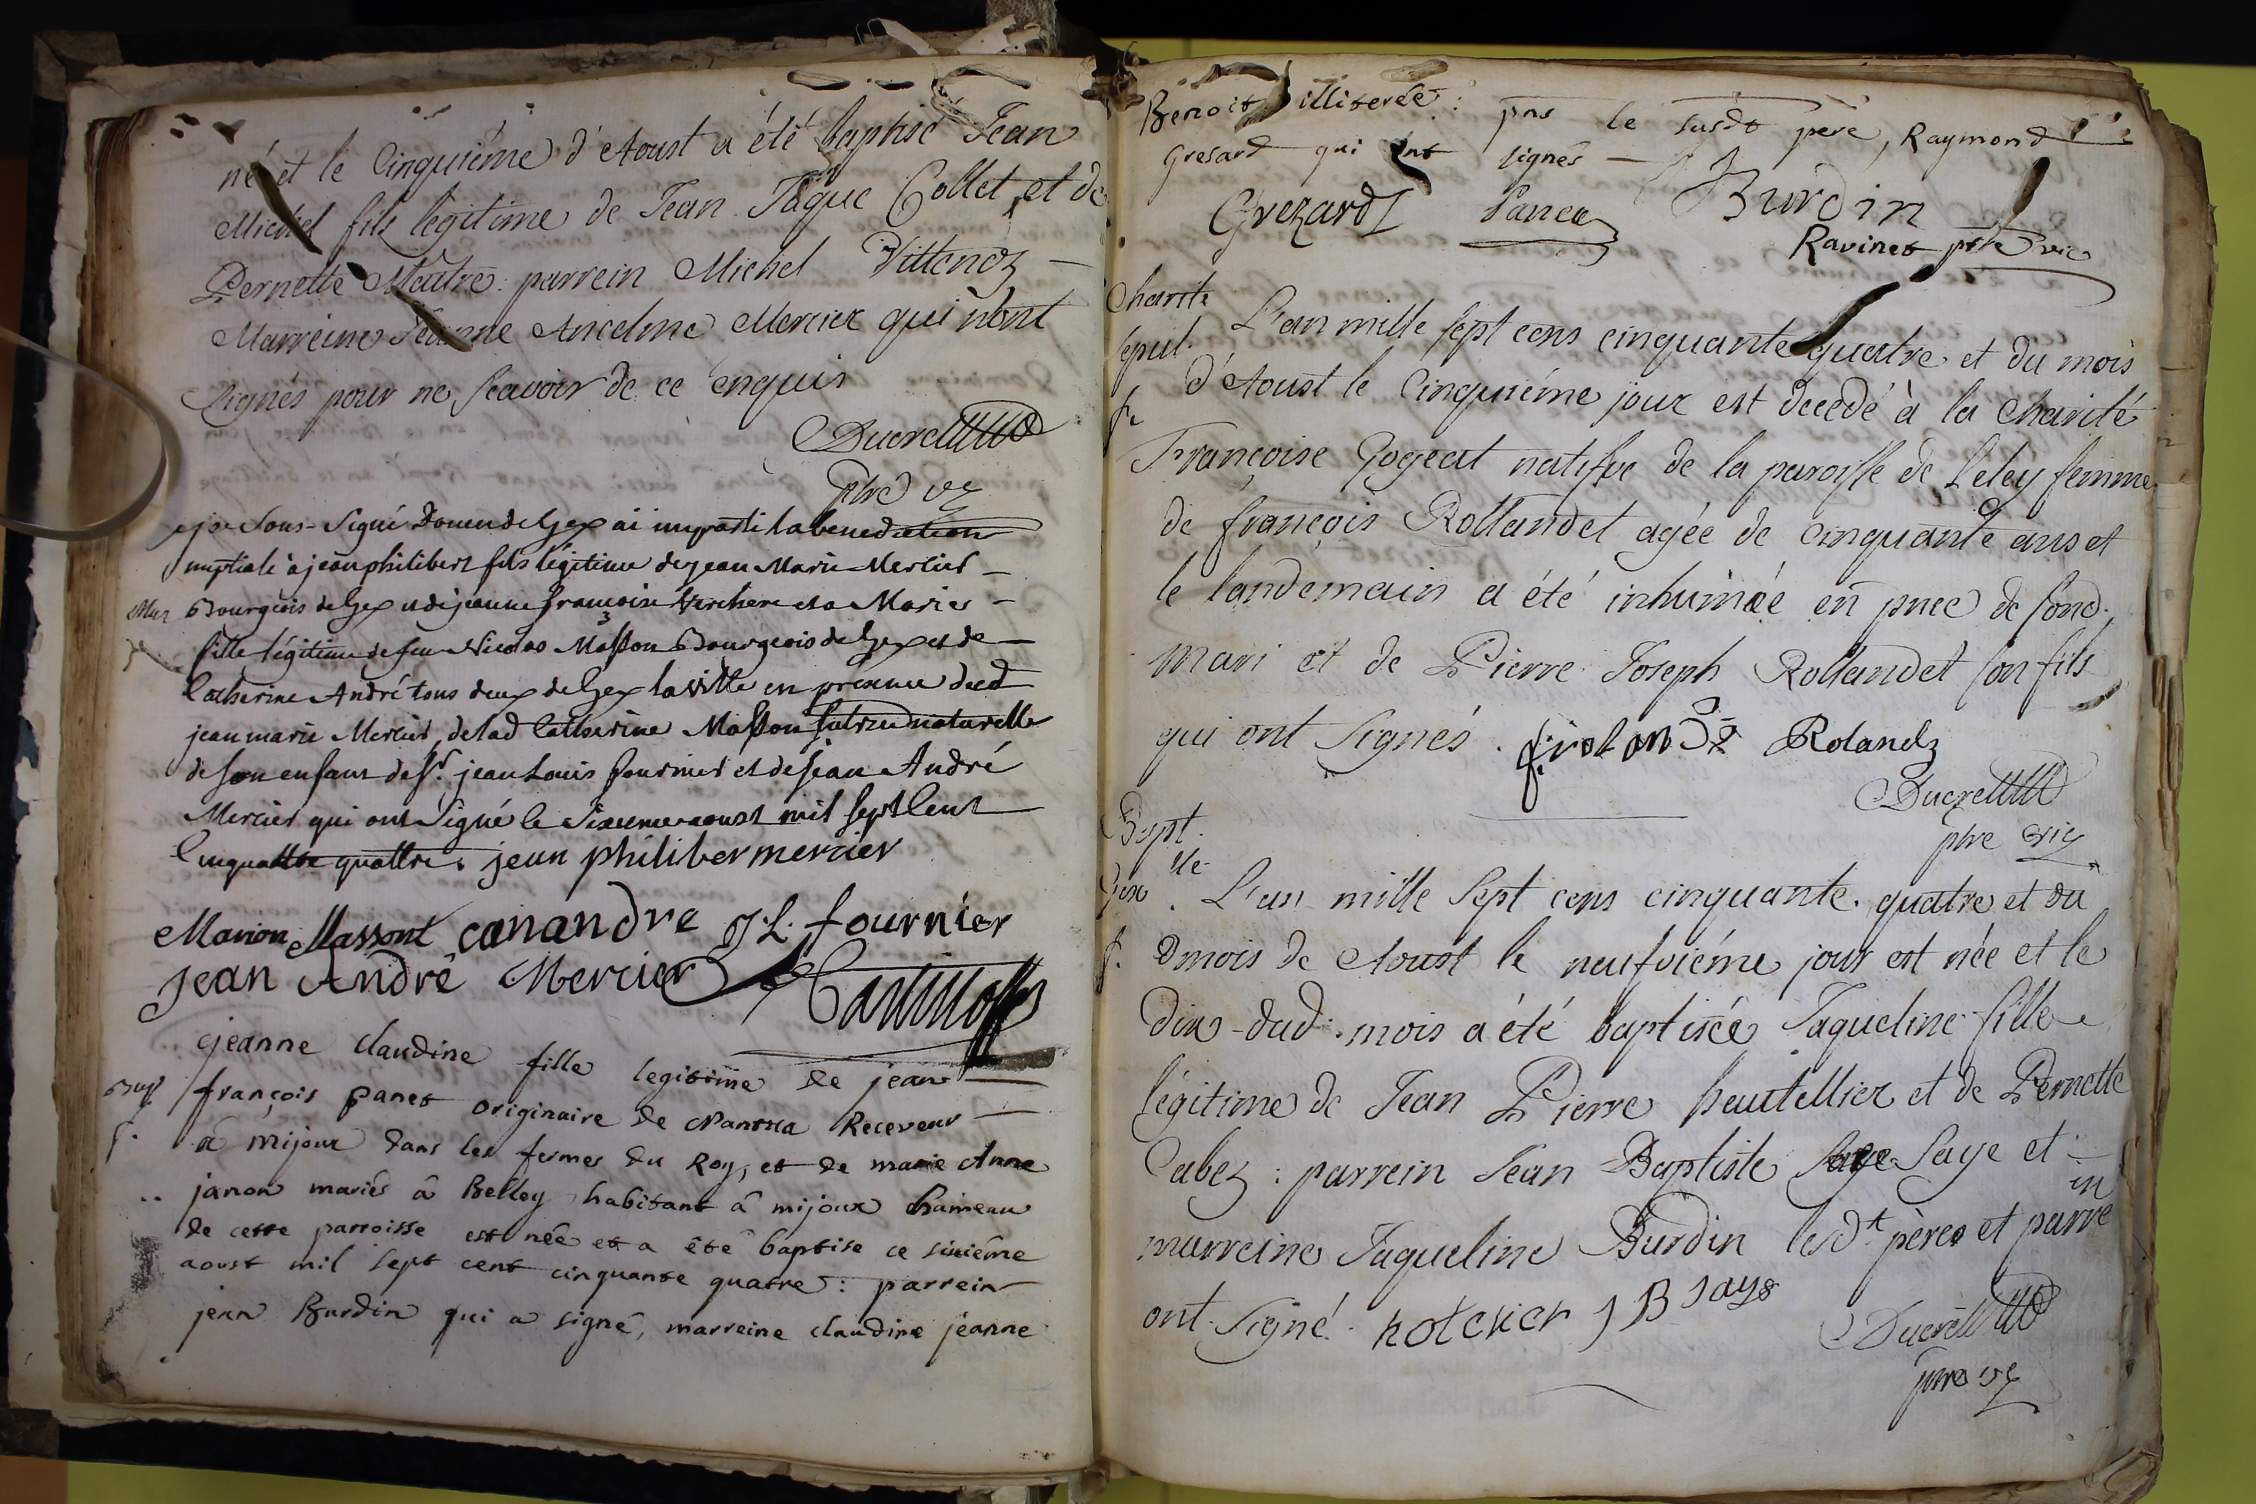 né et le Cinquième d'Aoust a été baptisé Jean
Michel fils légitime de Jean Jaque Collet et de
Pernette Meutre : parrein Michel Vittenoz
Marreine Jeanne Anceline Mercier qui n'ont
Signés pour ne Scavoir de ce enquis
Ducret
ptre vic
je Sous-Signé Doyen de Gex ai imparti la benediction
nuptiale à jean philibert fils légitime de jean Marie Mercier
Mar Bourgeois de Gex et de jeanne françoise Verchere et a Marie
fille légitime de feu Nicolas Masson Bourgeois de Gex et de
Catherine André tous deux de Gex la ville en présence dud
jean marie Mercier, de lad Catherine Masson naturelle
de son enfant de Sr. jean Louis fournier et de jean André
Mercier qui ont Signé le Sixieme aoust mil Sept Cent
Cinquante quattre. jean philiber mercier
Marion Massont canandre J L. fournier
Jean André Mercier
jeanne claudine fille legitime de jean
Bap françois panet originaire de Nantua Receveur
f. à mijoux dans les fermes du Roy, et de marie Anne
janon mariés à Belley habitant à mijoux hameau
de cette parroisse est née et a été baptise ce sixième
aoust mil sept cent cinquante quatre : parrein
jean Burdin qui a signé, marreine claudine jeanne
Benoit illiterée : pns le susdt pere, Raymond
Gresard qui ont signés
Grezard Panet Burdin
Ravinet ptre vic
Charité
Sepul. L'an mille sept cens cinquante quatre et du mois
d'Aoust le Cinquième jour est decedé à la Charité
fe
Françoise Gogeat natifve de la paroisse de Leley femme
de françois Rollandet agée de cinquante ans et
le landemain a été inhumée en pnce de sond.
mari et de Pierre Joseph Rollandet son fils
qui ont Signés. f. rolandz Rolandz
Ducret
ptre vic
Bapt.
Gex L'an mille Sept cens cinquante quatre et du
f. dmois de Aoust le neufvième jour est née et le
dix-dud. mois a été baptisée Jaqueline fille
légitime de Jean Pierre heutellier et de Pernette
Cabez : parrein Jean Baptiste Saye et
marreine Jaqueline Burdin lesdt pères et parrein
ont Signé. hotelier J B Saye
Ducret
ptre vic